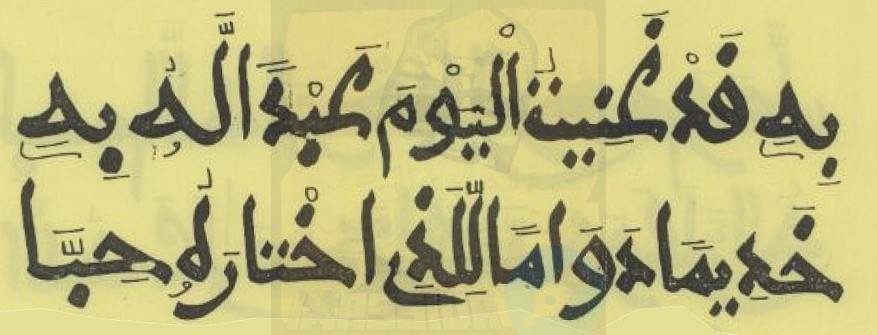 بِهِ قَدْ غَنِيتُ الْيَوْمَ عَبْدًا لَّهُ بِهِ
خَدِيمًا دَوَامًا لِلَّذِي اخْتَارَهُ حِبًّا